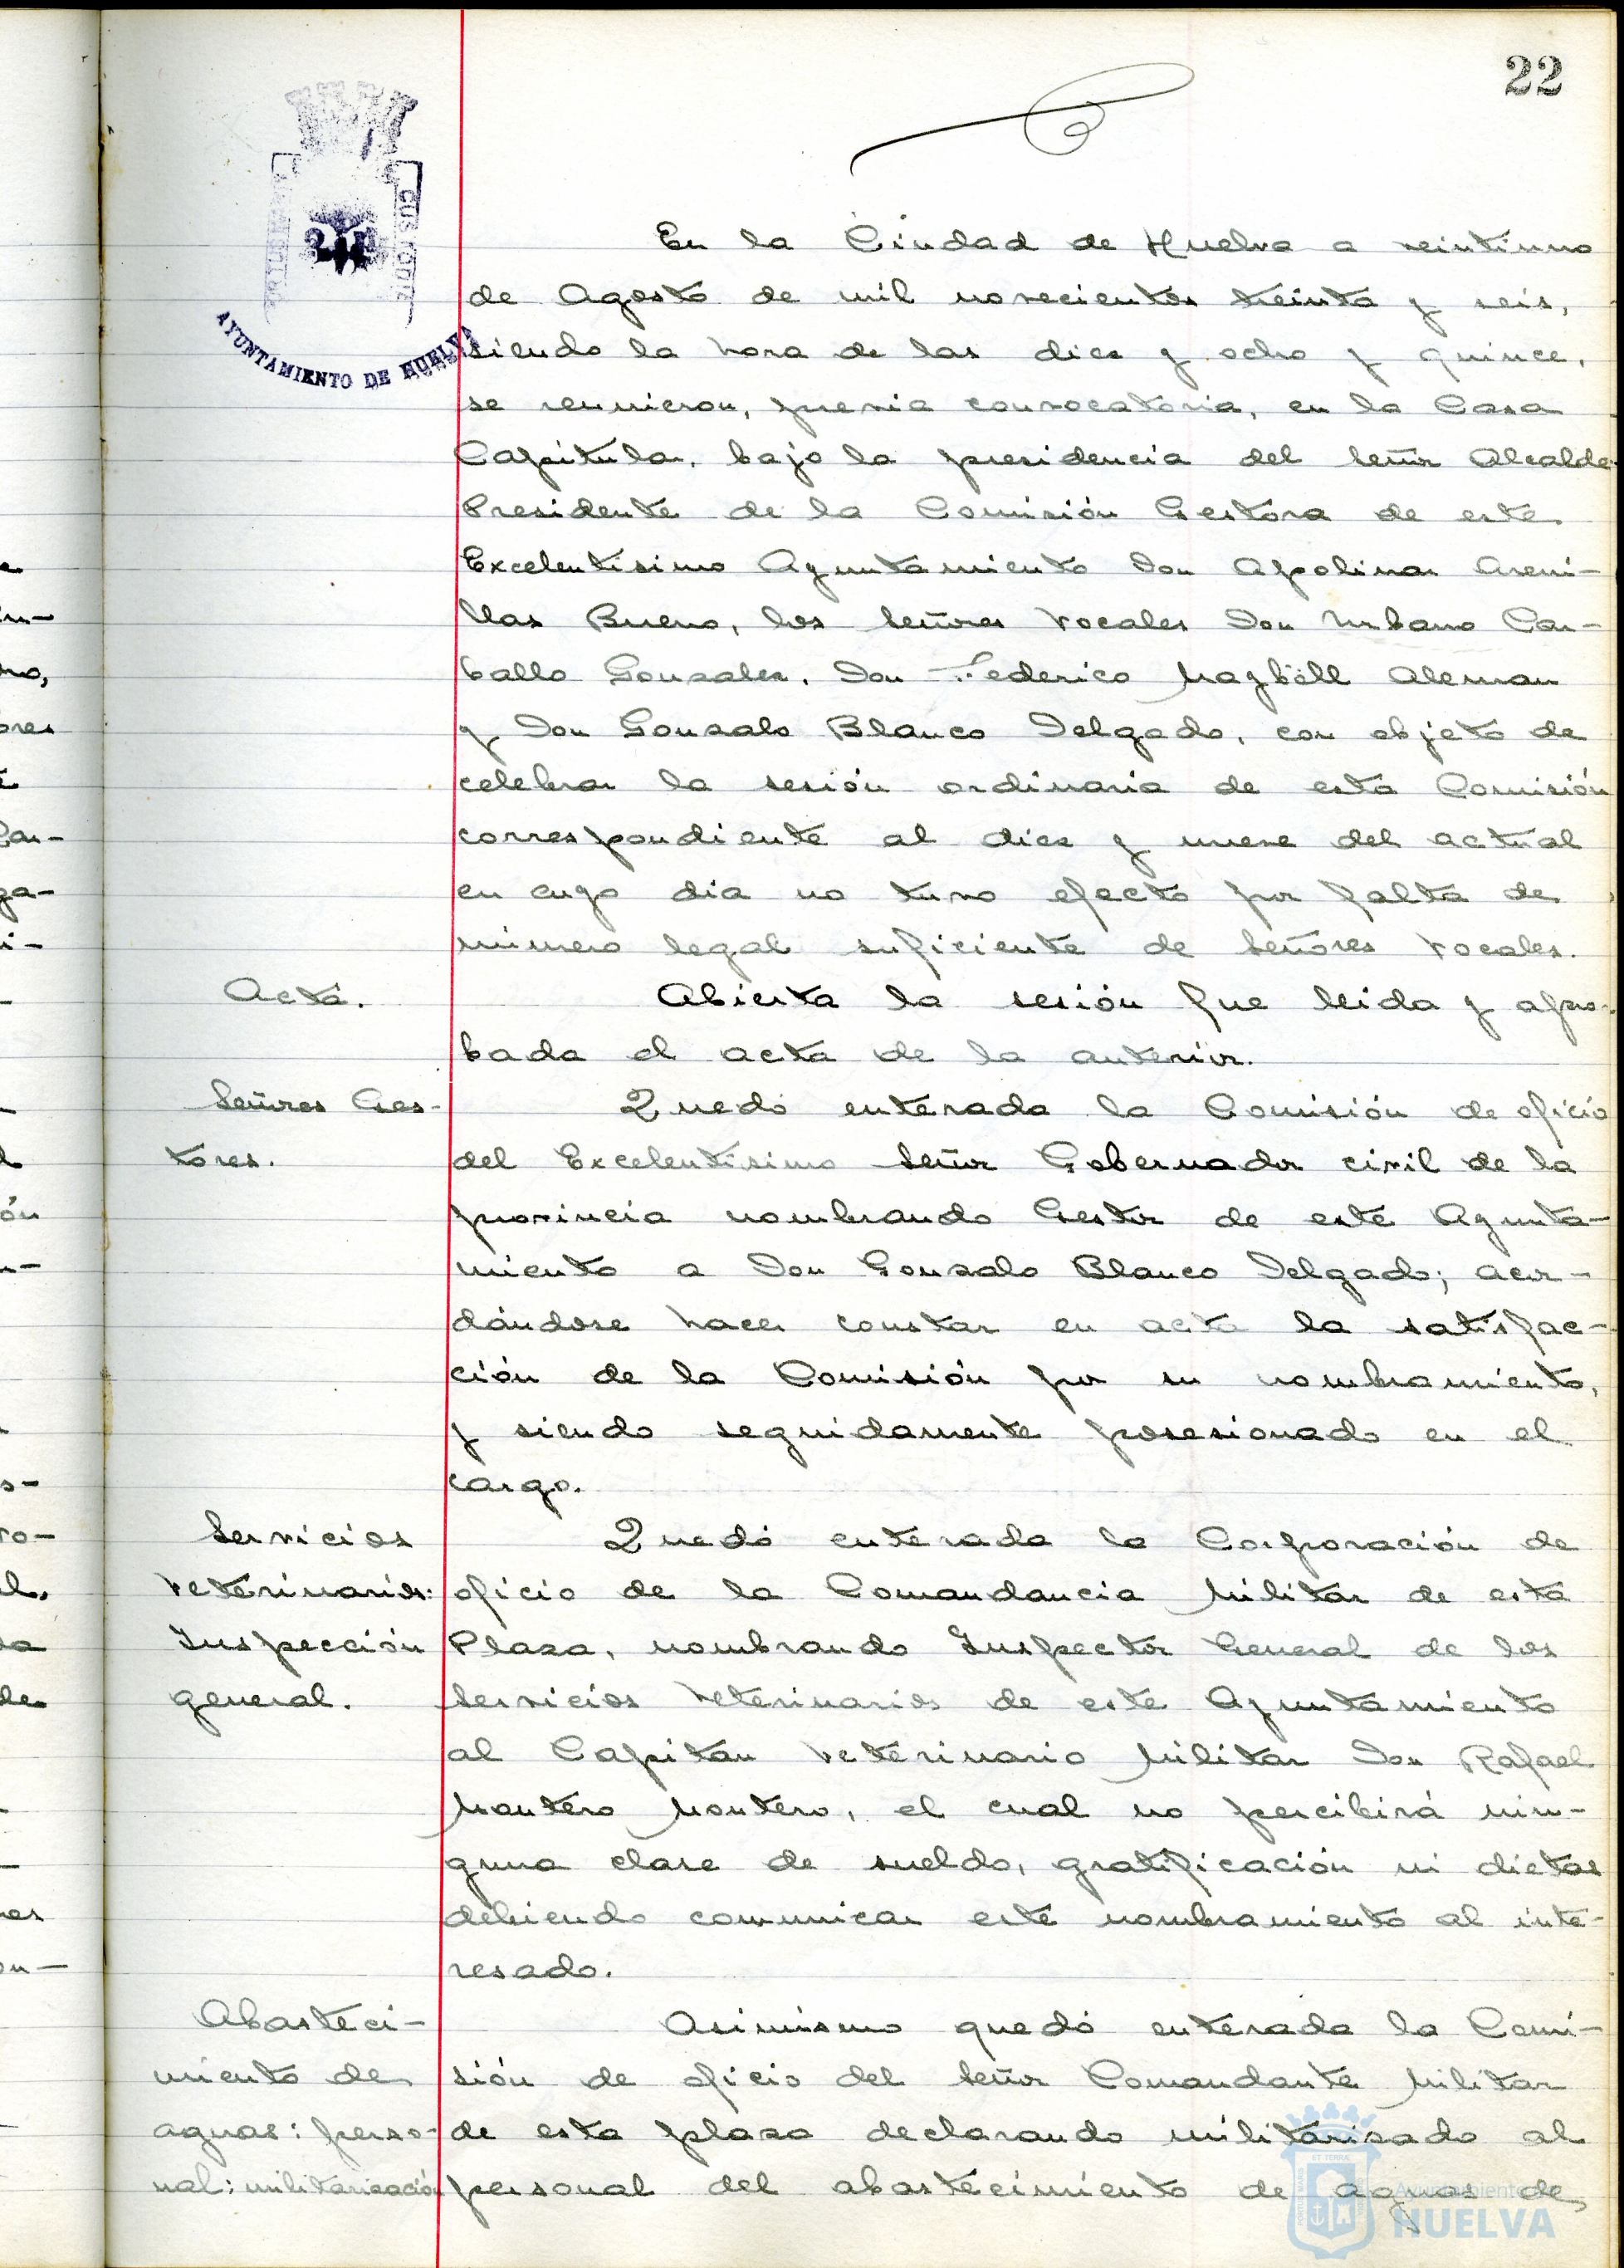 22
AYUNTAMIENTO DE HUELVA
En la Ciudad de Huelva a veintiuno
de Agosto de mil novecientos treinta y seis,
siendo la hora de las diez y ocho y quince,
se reunieron, previa convocatoria, en la Casa
Capitular, bajo la presidencia del Señor Alcalde
Presidente de la Comisión Gestora de este
Excelentísimo Ayuntamiento Don Apolinar Areni-
llas Bueno, los Señores Vocales Don Urbano Car-
ballo Gonzalez, Don Federico Aleman
y Don Gonzalo Blanco Delgado, con objeto de
celebrar la sesión ordinaria de esta Comisión
correspondiente al diez y nueve del actual
en cuyo dia no tuvo efecto por falta de
número legal suficiente de Señores Vocales.
Acta.
Abierta la sesión fue leida y apro-
bada el acta de la anterior.
Señores Ges-
tores.
Quedó enterada la Comisión de oficio
del Excelentísimo Señor Gobernador civil de la
provincia nombrando Gestor de este Ayunta-
miento a Don Gonzalo Blanco Delgado; acor-
dándose hacer constar en acta la satisfac-
ción de la Comisión por su nombramiento,
y siendo seguidamente posesionado en el
cargo.
Servicios
Veterinarios:
Inspección
general.
Quedó enterada la Corporación de
oficio de la Comandancia Militar de esta
Plaza, nombrando Inspector General de los
Servicios Veterinarios de este Ayuntamiento
al Capitan Veterinario Militar Don Rafael
Montero Montero, el cual no percibirá nin-
guna clase de sueldo, gratificación ni dietas
debiendo comunicar este nombramiento al inte-
resado.
Abasteci-
miento de
aguas: perso-
nal: militarización
Asimismo quedó enterada la Comi-
sión de oficio del Señor Comandante Militar
de esta plaza declarando militarizado al
personal del abastecimiento de aguas de
Ayuntamiento
HUELVA